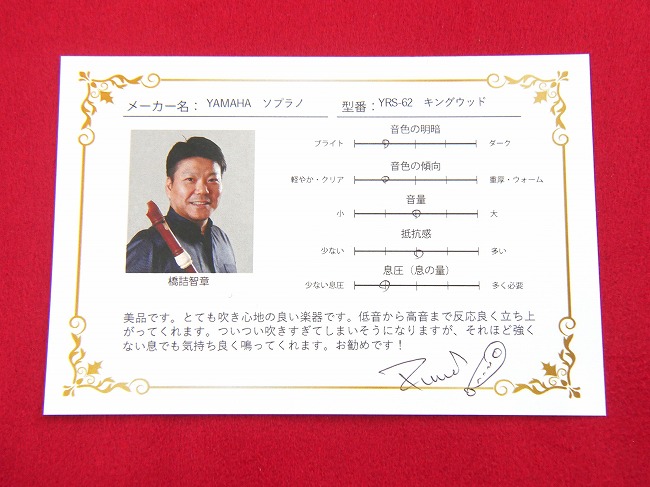 メーカー名： YAMAHA ソプラノ 型番： YRS-62 キングウッド
音色の明暗
ブライト ダーク
音色の傾向
軽やか・クリア 重厚・ウォーム
音量
小 大
抵抗感
少ない 多い
息圧（息の量）
少ない息圧 多く必要
橋詰智章
美品です。とても吹き心地の良い楽器です。低音から高音まで反応良く立ち上
がってくれます。ついつい吹きすぎてしまいそうになりますが、それほど強く
ない息でも気持ち良く鳴ってくれます。お勧めです！